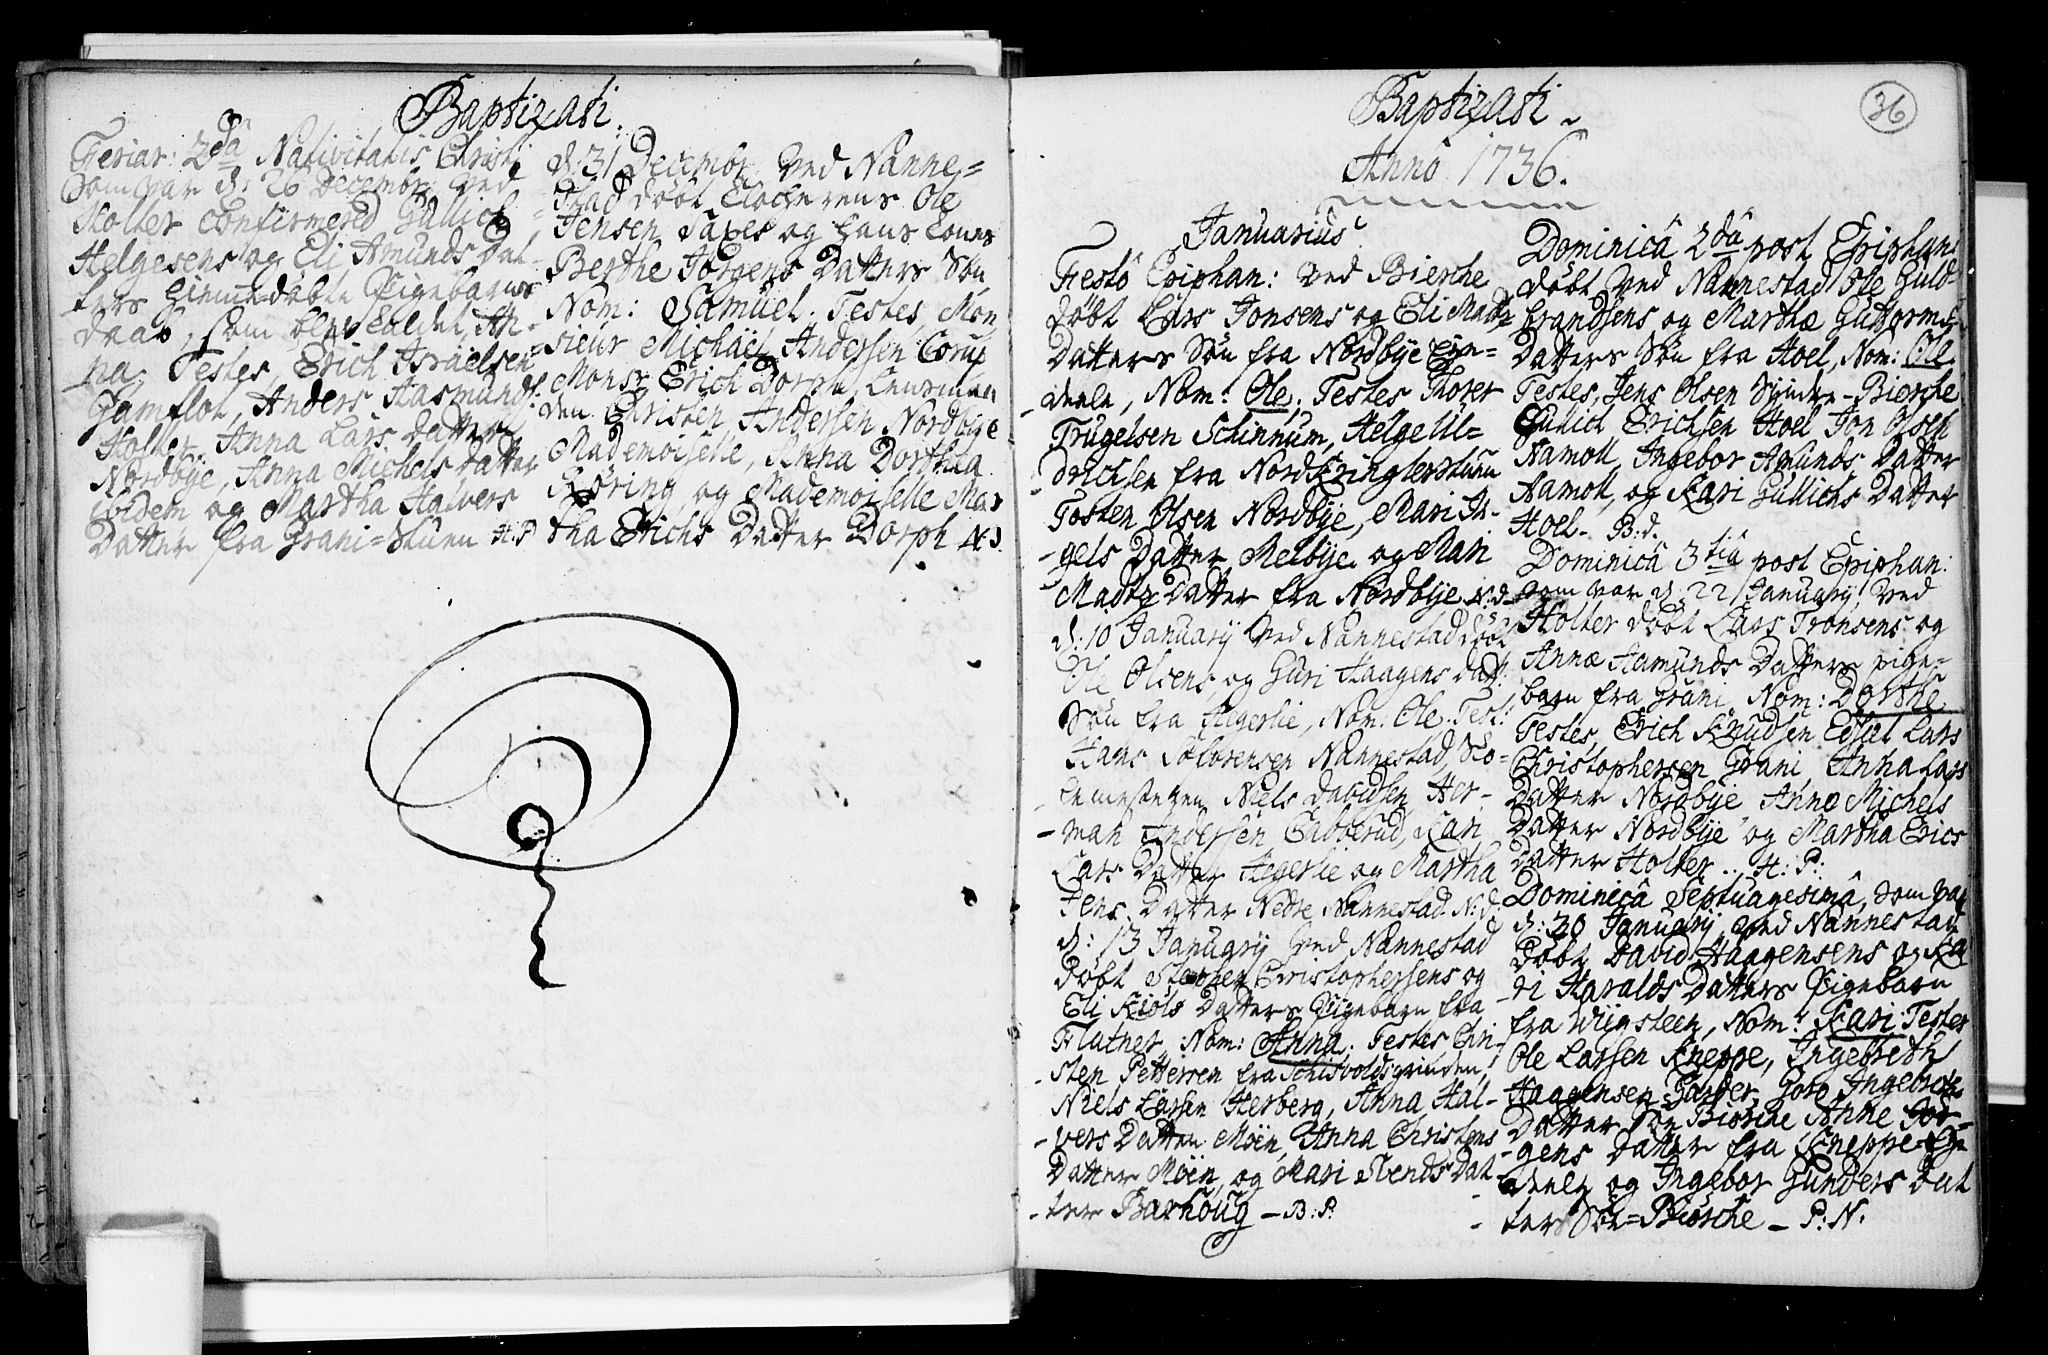 Baptizati.
Feriar: 2dâ Nativitatis Christi
som var d: 26 Decembr: ved
Holter Confirmered Gullich
Helgesens og Eli Amunds Dat-
ters hiemmedöbte Pigebarns
Daab, som blev kaldet An-
na. Testes, Erich Israelsen
Gamflot, Anders Aasmunds:
Holter, Anna Lars Datter
Nordbÿe, Anna Michels Datter
ibidem og Martha Halvers
Datter fra Grani=Stuen H:P
d: 31 Decembr: ved Nanne=
stad döbt Klocherens Ole
Jensen Saxes og hans Kones
Berthe Jörgens Datters Sön
Nom: Samuel. Testes, Mon
sieur Michael Andersen Corup
Monsr Erich Dorph, Lensman
den Christen Andersen Nordbÿe
Mademoiselle, Anna Dorthea
Röring, og Mademoiselle Mar
tha Erichs Datter Dorph N:d.
36
Baptizati.
Annô 1736.
Januarius.
Festô Epiphan: ved Bierche
döbt Lars Jonsens og Eli Madtz
Datters Sön fra Nordbÿe Eÿe=
deele, Nom: Ole. Testes Thorer
Trugelsen Schinnum, Helge Ul=
drichsen fra Nordkringlerstuen
Tosten Olsen Nordbÿe, Mari In-
gels Datter Melbÿe og Mari
Madtz Datter fra Nordbÿe N:d
d: 10 Januarÿ ved Nannestad döbt
Ole Olsens og Guri Haagens Datt:
Sön fra Aegerlie, Nom: Ole. Test:
Hans Nannestad, Sko=
lemesteren Niels Davidsen, Her-
man Andersen, Kari
Lars Datter Aegerlie og Martha
Jens Datter Nedre Nannestad. N:d.
d: 13 Januarÿ ved Nannestad
döbt Stephen Christophersens og
Eli Kiöls Datters Pigebarn fra
Flatner, Nom: Anna. Testes Chri-
sten Pettersen fra Schisvoldsgrinden,
Niels Larsen Herberg, Anna Hal-
vers Datter Möen, Anna Christens
Datter Möen, og Mari Svends Dat-
ter Barhoug – B:P.
Dominicâ 2dâ post Epiphan:
döbt ved Nannestad Ole Guld-
brandsens og Marthæ Guttorms-
Datters Sön fra Hoel, Nom: Ole.
Testes, Jens Olsen Syndre-Bierche
Gullich Erichsen Hoel Jon Olsen
Aamott, Ingebor Amunds Datter
Aamott, og Kari Gullichs Datter
Hoel. B:d.
Dominicâ 3tiâ post Epiphan:
som var d. 22 Januarÿ, ved
Holter döbt Lars Tronsens og
Annæ Aamunds Datters pige-
barn fra Grani. Nom: Dorthe.
Testes, Erich Knudsen Lars
Christophersen Grani, Anna Lars
Datter Nordbÿe Anne Michels
Datter Nordbÿe og Martha Erics
Datter Holter. . H: P:
Dominicâ Septuagesimâ, som var
d: 30 Januarÿ, ved Nannestad
döbt David Haagensens og Ka
ri Haralds Datters Pigebarn
fra Wigsteen, Nom: Kari. Testes
Ole Larsen Kneppe, Ingebreth
Haagensen Garder, Goro Ingebreths
Datter Sör Biörche Anne Jör-
gens Datter fra Kneppe=Eÿe
deele, og Ingebor Gunders Dat
ter Sör=Biörche – P: N: